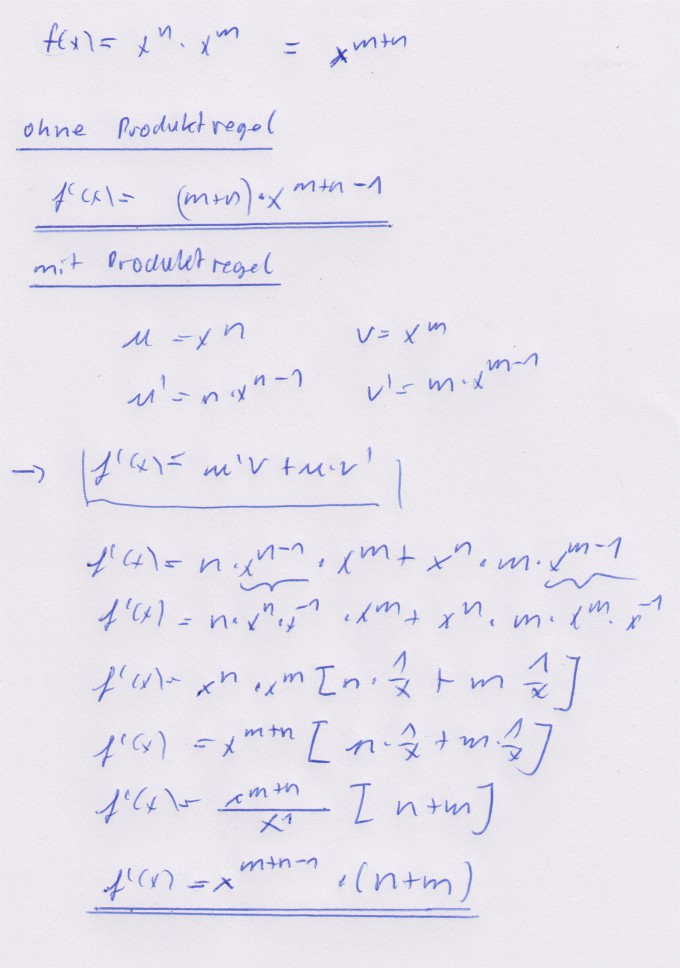 f(x) = xⁿ · xᵐ = xᵐ⁺ⁿ
ohne Produktregel
f'(x) = (m+n) · xᵐ⁺ⁿ⁻¹
mit Produktregel
u = xⁿ v = xᵐ
u' = n · xⁿ⁻¹ v' = m · xᵐ⁻¹
→ f'(x) = u'v + u·v'
f'(x) = n · xⁿ⁻¹ · xᵐ + xⁿ · m · xᵐ⁻¹
f'(x) = n · xⁿ · x⁻¹ · xᵐ + xⁿ · m · xᵐ · x⁻¹
f'(x) = xⁿ · xᵐ [n · 1/x + m 1/x]
f'(x) = xᵐ⁺ⁿ [n · 1/x + m · 1/x]
f'(x) = xᵐ⁺ⁿ/x¹ [n+m]
f'(x) = xᵐ⁺ⁿ⁻¹ · (n+m)